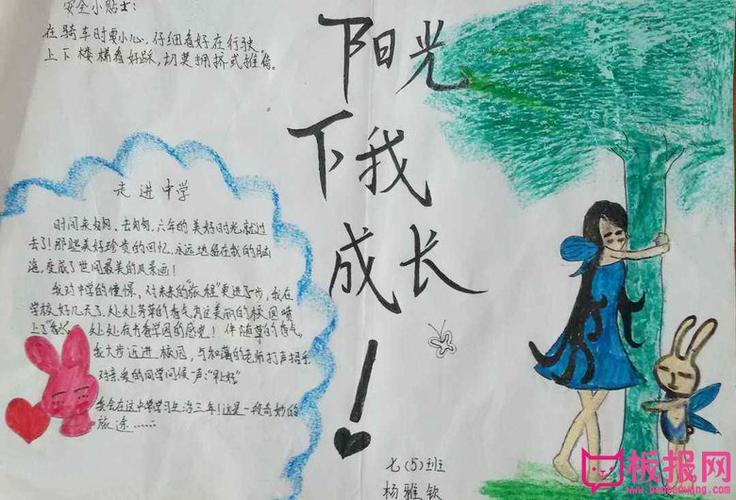 安全小贴士:
在骑车时要小心,仔细看好在行驶。
上下楼梯看好踩,切莫拥挤或推搡。
阳光
下我
成长
!
走进中学
时间来如, 去匆匆,六年的美好时光,就过
去了!那些美好珍贵的回忆,永远地留在我的脑
海,变成了世间最美的风景画!
我对中学的憧憬、对未来的“旅程”更进了步,我在
学校好几天了,处处芳草的香气,为这美丽的校园喷
上了 ,处处在书香学园的感觉!伴随草的香气
我大步迈进校园,与和蔼的老师打声招乎
对亲爱的同学问候一声:“早上好”
我会在这中学学习生活三年!这是一段奇妙的
旅途……
七(5)班
杨雅钦
板报网
www.banbaowang.com